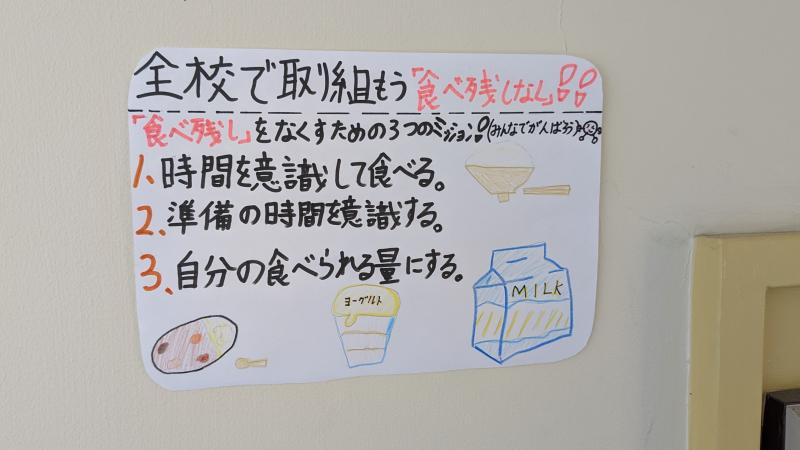 全校で取り組もう「食べ残しなし」!!
「食べ残し」をなくすための3つのミッション!(みんなでがんばろう
1、時間を意識して食べる。
2、準備の時間を意識する。
3、自分の食べられる量にする。
ヨーグルト
MILK